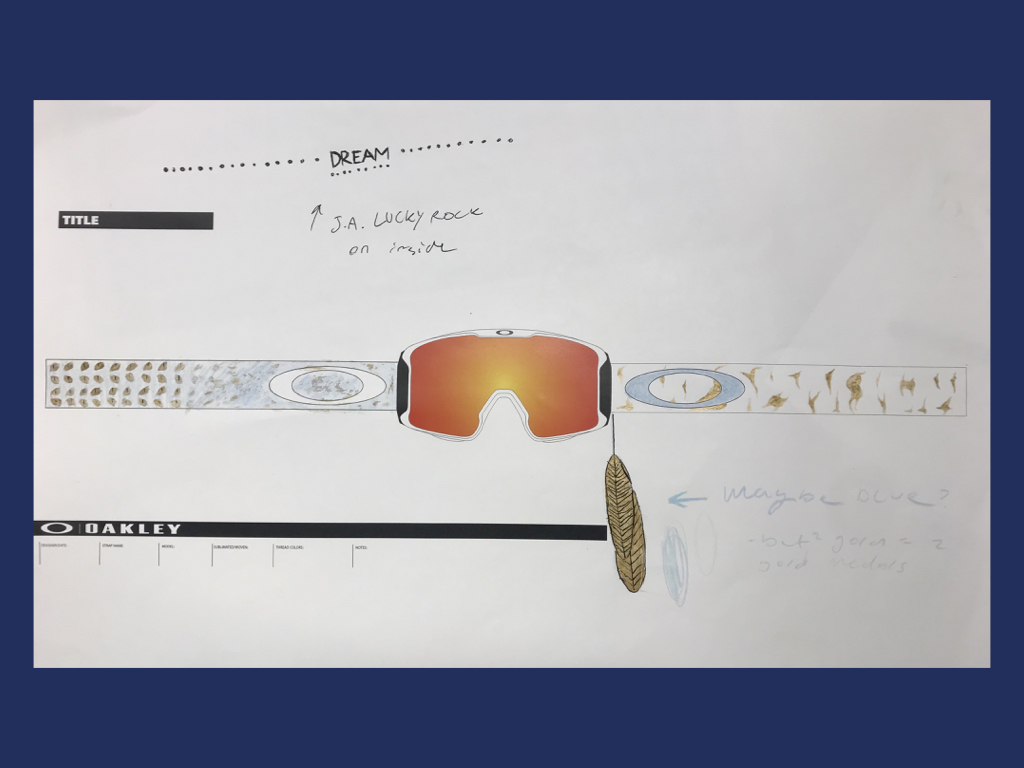 DREAM
TITLE
J.A. LUCKY ROCK
on inside
Maybe BLUE?
- but 2 gold = 2
gold medals
OAKLEY
STRAP NAME:
MODEL:
SUBLIMATED/WOVEN:
THREAD COLORS:
NOTES: